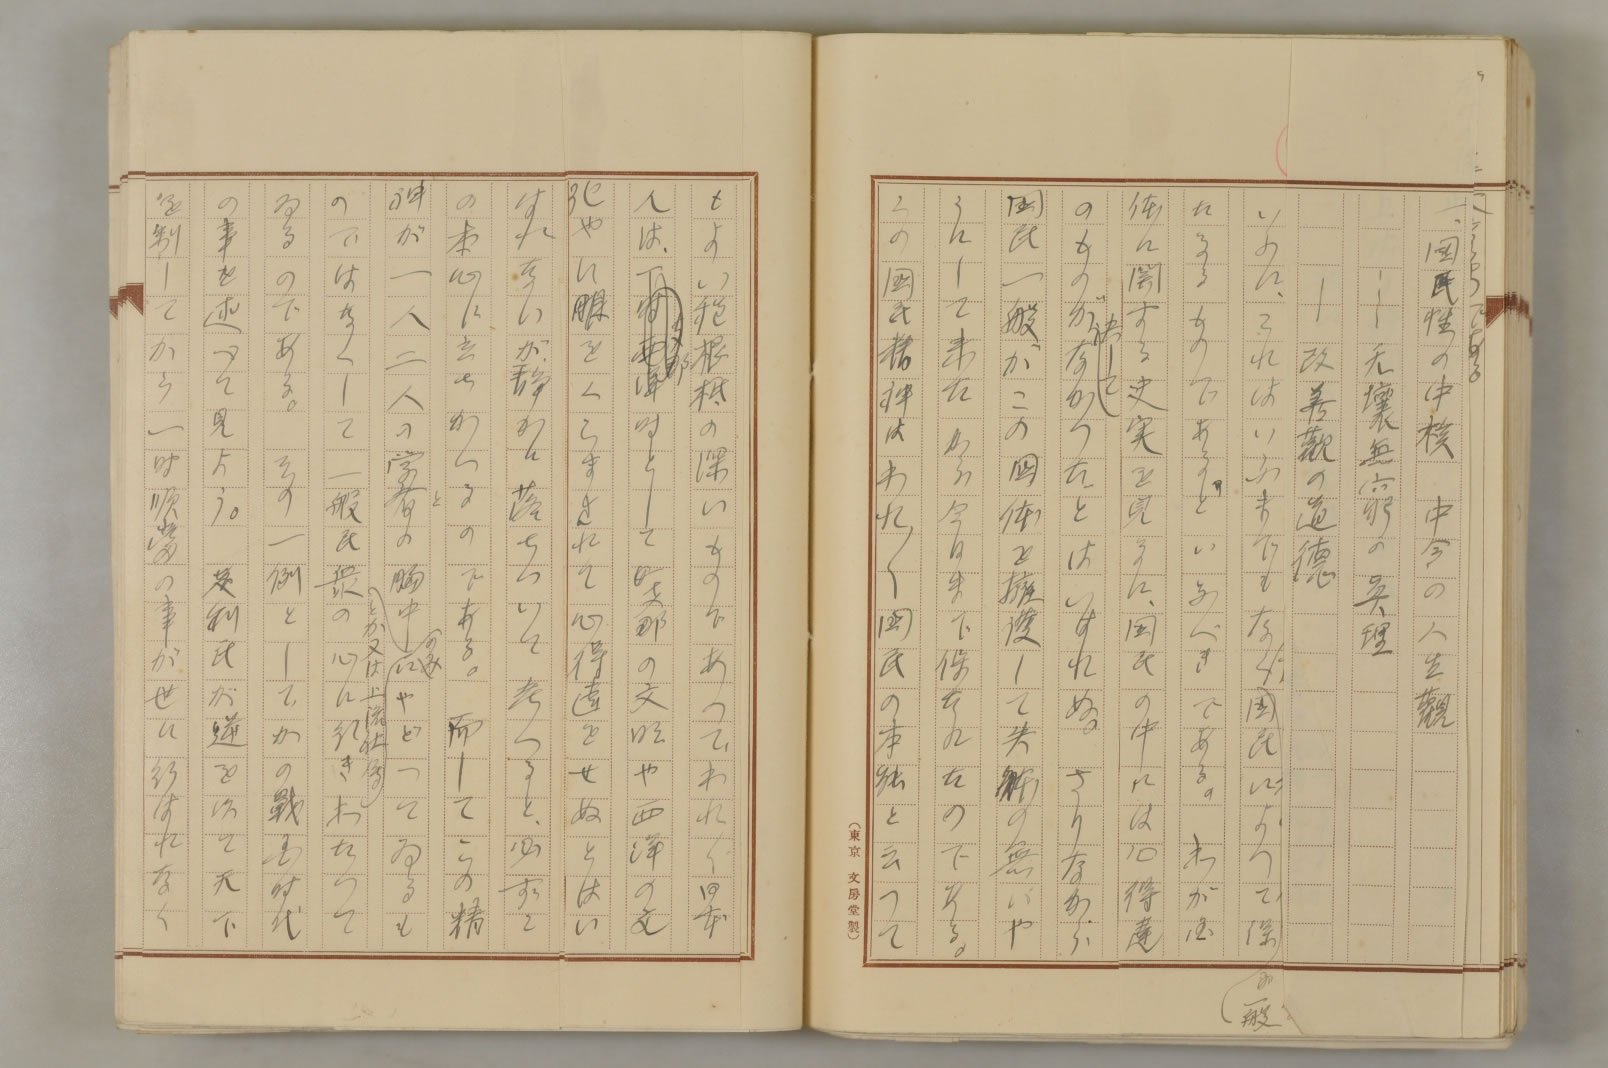 一、国民性の中核　中今の人生觀
――天壤無窮の真理
―改善觀の道徳
いふに、これはいふまでもなく国民によつて保
たるゝものであるといふべきである。わが国
体に関する史実を見るに、国民の中には心得違
のものが決してなかつたとはいはれぬ。さりながら
国民一般がこの国体を擁護して失墜の無いや
うにして来たから今日まで保たれたのである。
この国民精神はわれ〳〵国民の本性と云つて
もよい程根柢の深いものであつて、われ〳〵日本
人は、時として支那の文明や西洋の文
化やに眼をくらまされて心得違をせぬとはい
はれないが、静かに落ちついて考へると、必ずこ
の本心に立ちかへるのである。而してこの精
神が一人二人の学者の胸中にのみやどつてゐるも
とか又は上流社会
のではなくして一般民衆の心に行きわたつて
ゐるのである。その一例としてかの戦国時代
の事を述べて見よう。足利氏が逆を以て天下
を制してから一時順當の事が世に行はれなく
（東京　文房堂製）